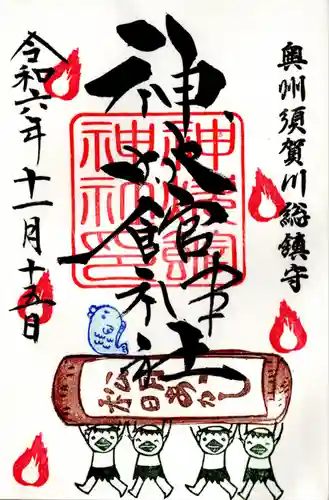 奥州須賀川総鎮守
神炊館神社
令和六年十一月十五日
松明あかし